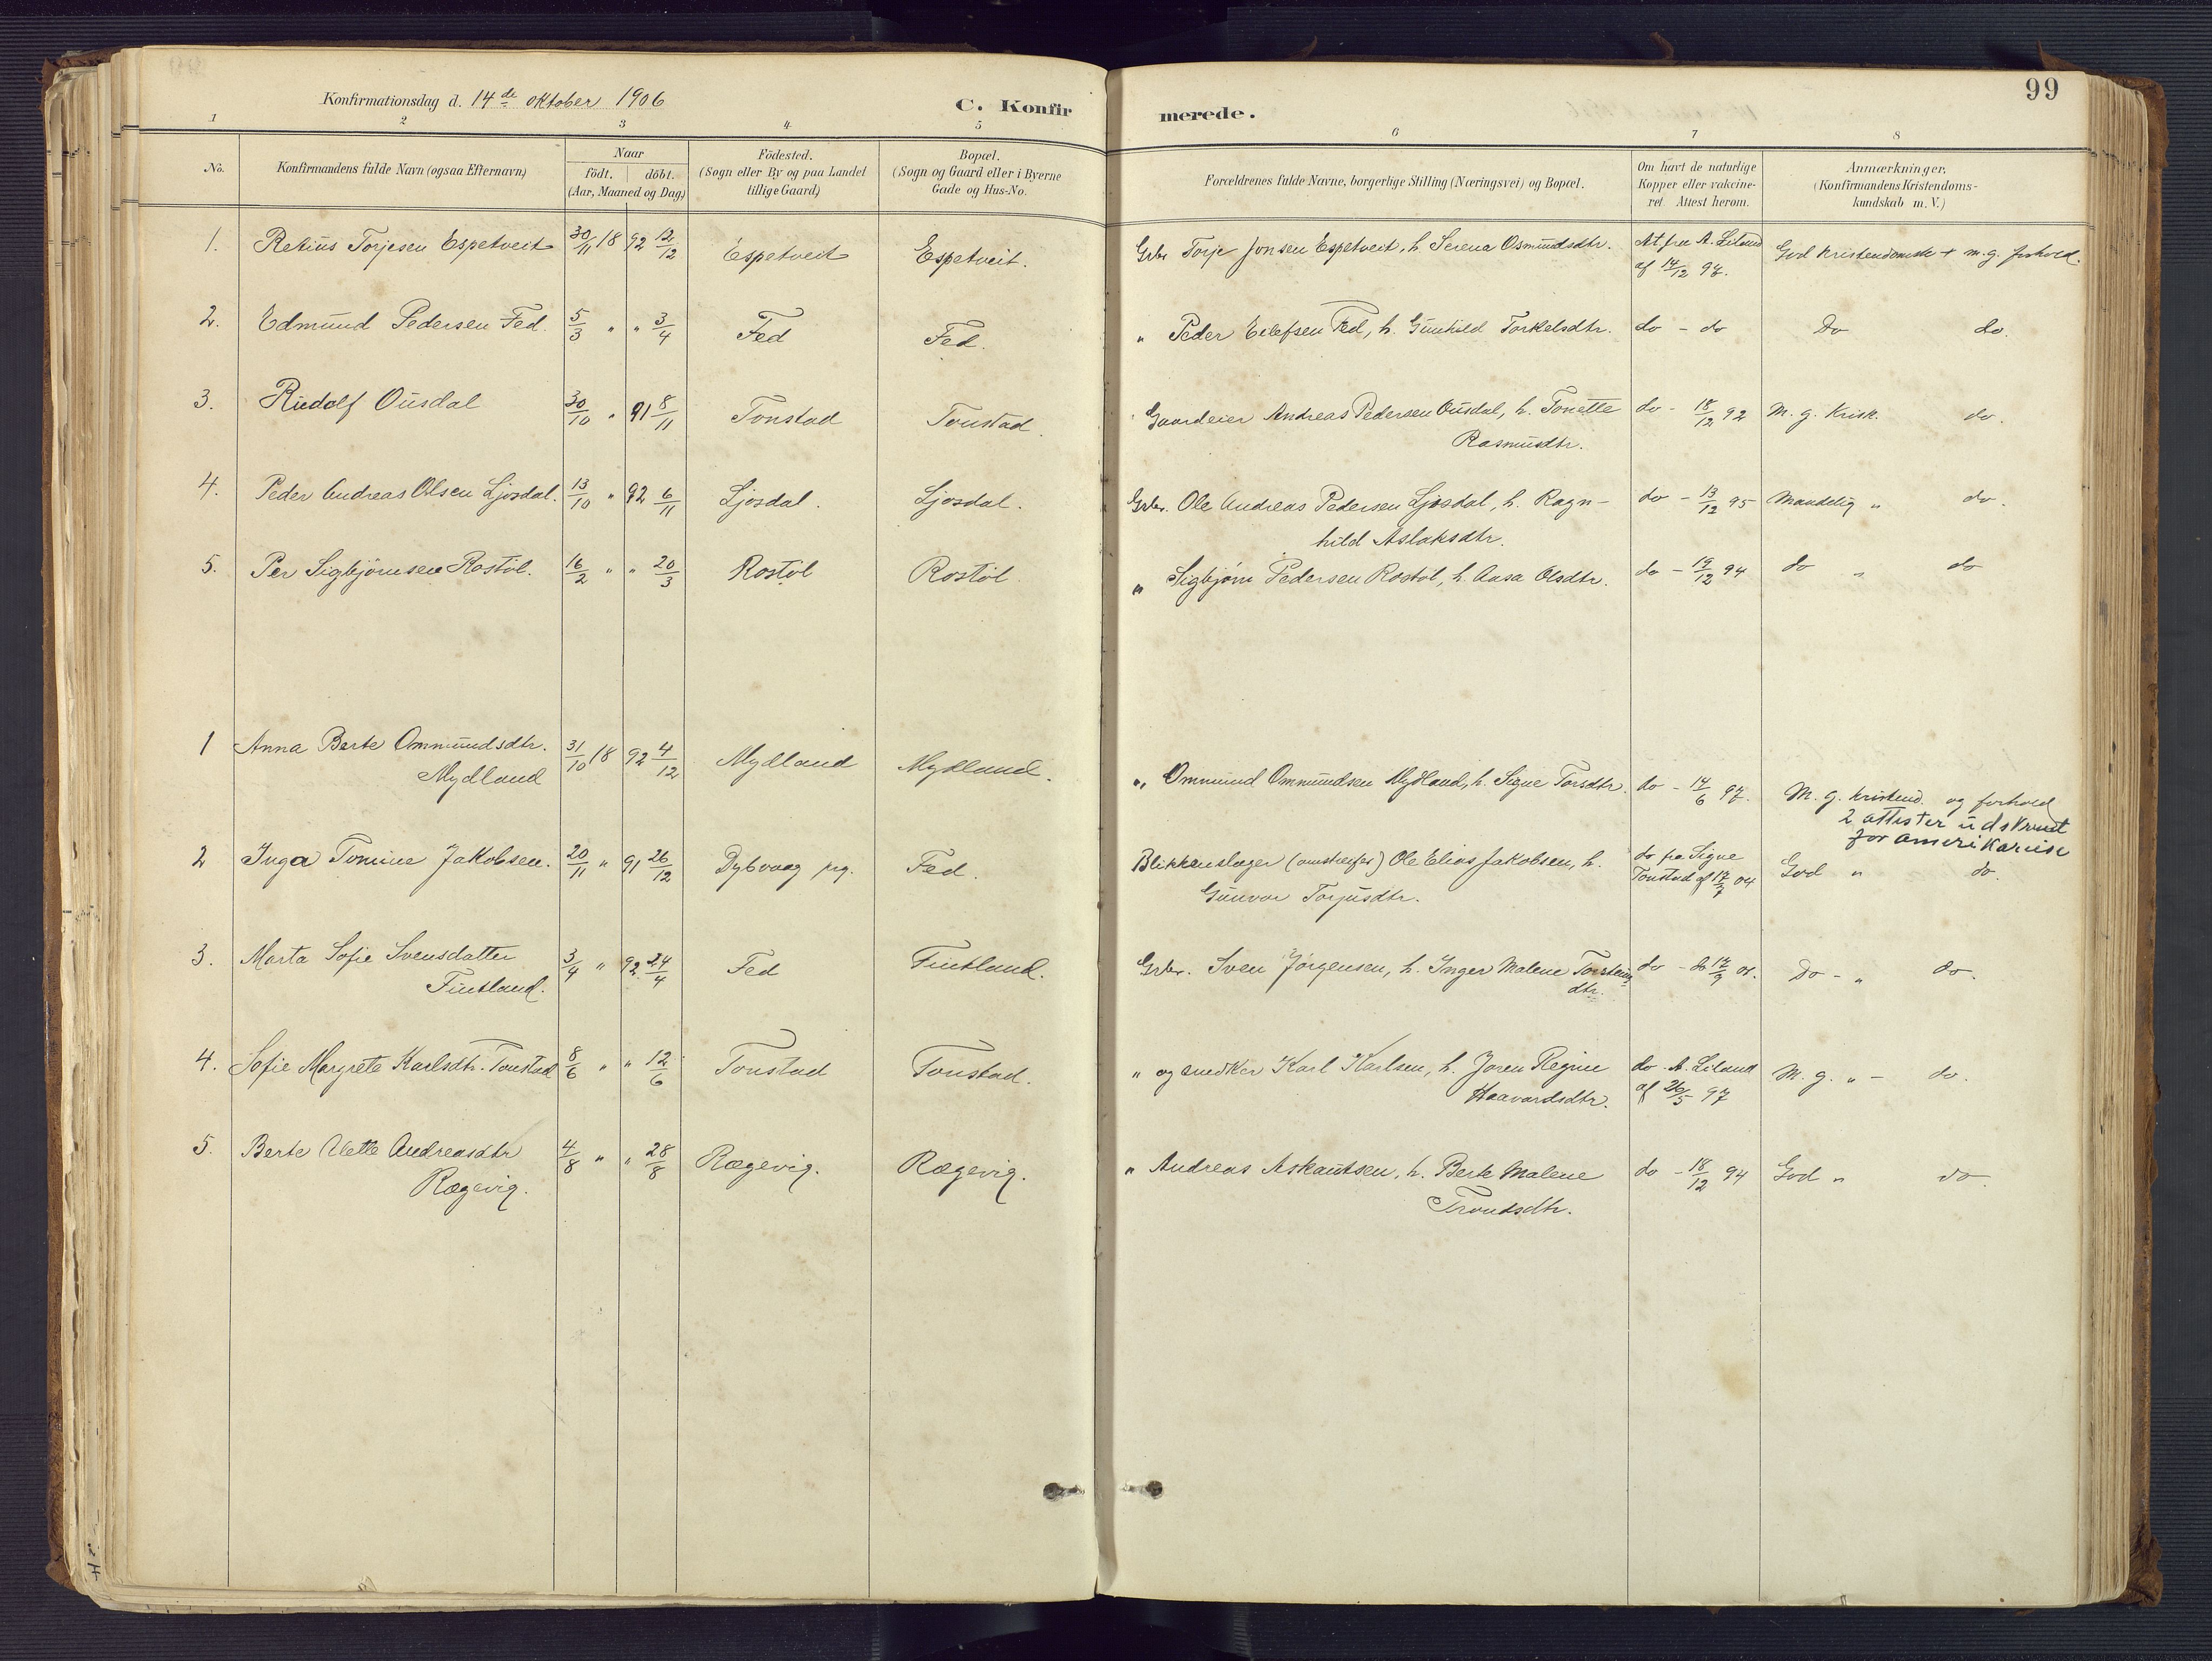 99
Konfirmationsdag d. 14de oktober 1906
C. Konfirmerede.
1 2 3 4 5 6 7 8
No.
Konfirmandens fulde Navn (ogsaa Efternavn)
Naar
födt. | döbt.
(Aar, Maaned og Dag)
Födested.
(Sogn eller By og paa Landet
tillige Gaard)
Bopæl.
(Sogn og Gaard eller i Byerne
Gade og Hus-No.
Forældrenes fulde Navne, borgerlige Stilling (Næringsvei) og Bopæl.
Om havt de naturlige
Kopper eller vakcine-
ret. Attest herom.
Anmærkninger.
(Konfirmandens Kristendoms-
kundskab m. V.)
1. Retius Torjesen Espetveit 30/11 18 92 12/12 Espetveit Espetveit. Grbr Torje Jonsen Espetveit, h. Serena Osmundsdtr. At. fra A. Liland
af 14/12 97. God Kristendomsk + m. g. forhold.
2. Edmund Pedersen Fed. 5/3 " " 3/4 Fed Fed. " Peder Eilefsen Fed, h. Gunhild Torkelsdtr. do - do Do do.
3. Rudolf Ousdal 30/10 " 91 8/11 Tonstad Tonstad. Gaardeier Andreas Pedersen Ousdal, h. Tonette
Rasmusdtr. do - 18/12 92 M. g. Krisk. do.
4. Peder Andreas Olsen Ljosdal. 13/10 " 92 6/11 Ljosdal. Ljosdal. Grbr. Ole Andreas Pedersen Ljosdal, h. Ragn-
hild Aslaksdtr. do - 13/12 95 Maadelig " do.
5. Per Sigbjörnsen Rostöl. 16/2 " " 20/3 Rostöl Rostöl. " Sigbjörn Pedersen Rostöl, h. Aasa Olsdtr. do - 19/12 94 do " do
1 Anna Berte Ommundsdtr.
Mydland 31/10 18 92 4/12 Mydland Mydland. " Ommund Ommundsen Mydland, h. Signe Torsdtr. do - 14/6 97. M. g. Kristend. og forhold
2 attester udskrevet
for amerikareise
2 Inga Tomine Jakobsen. 20/11 " 91 26/12 Dybvaag prg. Fed. Blikkenslager (omstreifer) Ole Elias Jakobsen, h.
Gunvor Torjusdtr. do fra Signe
Tonstad af 17/7 04 God " do.
3. Marta Sofie Svensdatter
Fintland. 3/4 " 92 24/4 Fed Fintland. Grbr. Sven Jörgensen, h. Inger Malene Torsteins
dtr. do - do Do - " do.
4. Sofie Margrete Karlsdtr. Tonstad 8/6 " " 12/6 Tonstad Tonstad. " og snedker Karl Karlsen, h. Joren Regine
Haavardsdtr. do. A. Liland
af 26/5 97 M. g. " - do.
5. Berte Andreasdtr
Rægevig. 4/8 " " 28/8 Rægevig. Rægevig. " Andreas Askautsen, h. Berte Malene
Trondsdtr. do - 18/12 94 God " do.